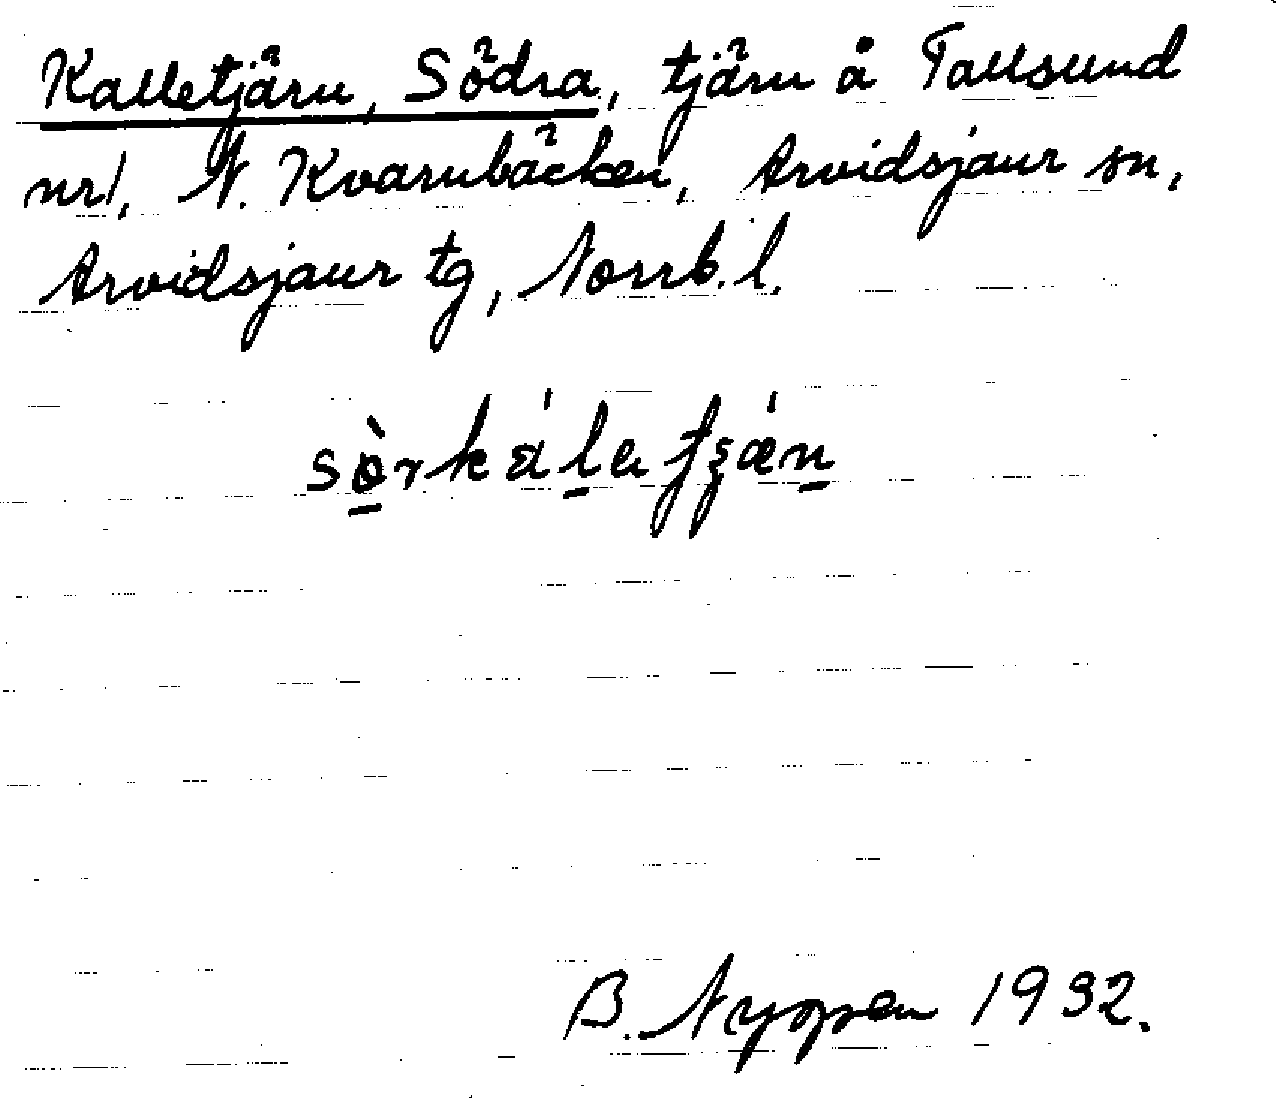 Kalletjärn, Södra, tjärn å Tallsund
nr 1, N. Kvarnbäcken, Arvidsjaur sn,
Arvidsjaur tg, Norrb. l.
B. Nygren 1932.